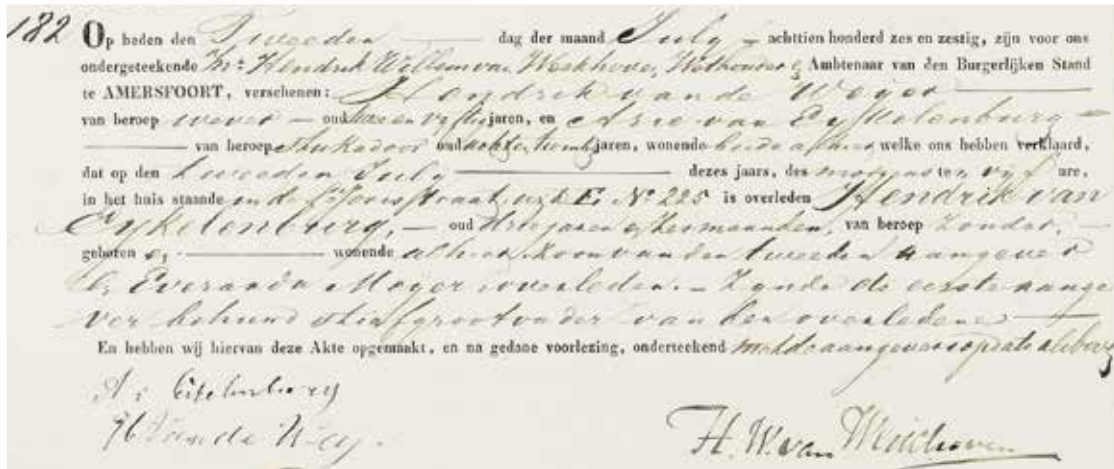 182 Op heden den Tweeden dag der maand July achttien honderd zes en zestig, zijn voor ons
ondergeteekende Mr. Hendrik Willem van Wethouder, Ambtenaar van den Burgerlijken Stand
te AMERSFOORT, verschenen: Hendrik van de Weger
van beroep wever oud twee en vyftig jaren, en Arie van Eykelenburg
van beroep oud acht en twintig jaren, wonende beide alhier welke ons hebben verklaard,
dat op den tweeden July dezes jaars, des morgens ten vyf ure,
in het huis staande in de straat, wyk E. No 225 is overleden Hendrik van
Eykelenburg, oud drie jaren en maanden, van beroep zonder,
geboren en wonende alhier, zoon van den tweeden aangever
en Everarda Meyer, overleden. Zynde de eerste aange
ver behuwd stiefgrootvader van den overledene
En hebben wij hiervan deze Akte opgemaakt, en na gedane voorlezing, onderteekend
H. van de
H. W. van